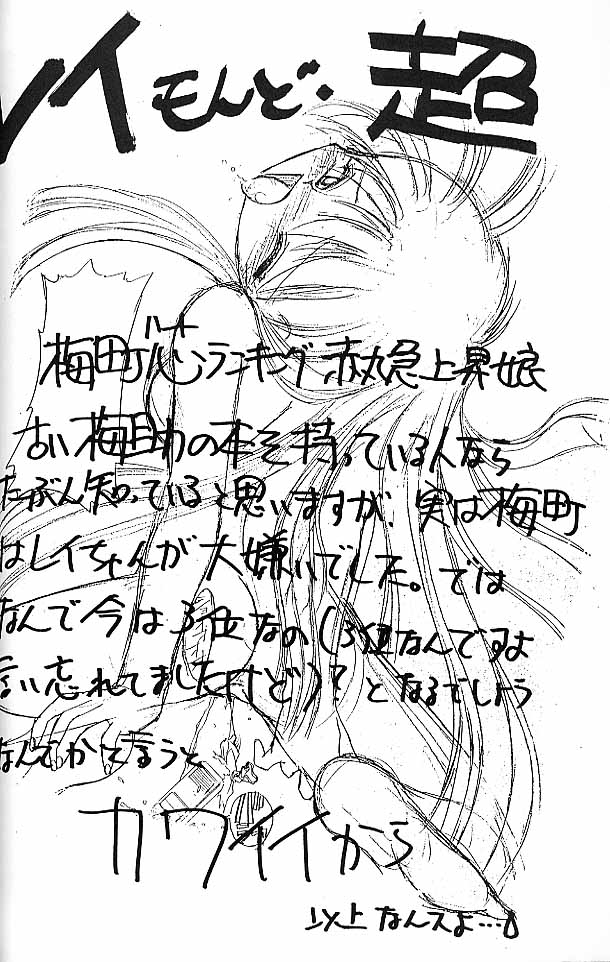 レイ もんど・超
ハート
梅町心ランキング赤丸急上昇娘
古い梅町の本を持っている人なら
たぶん知っていると思いますが、実は梅町
はレイちゃんが大嫌いでした。では
なんで今は3位なの(3位なんですよ
言い忘れてましたけど)?となるでしょう
なんでかと言うと
カワイイから
以上 なんスよ…